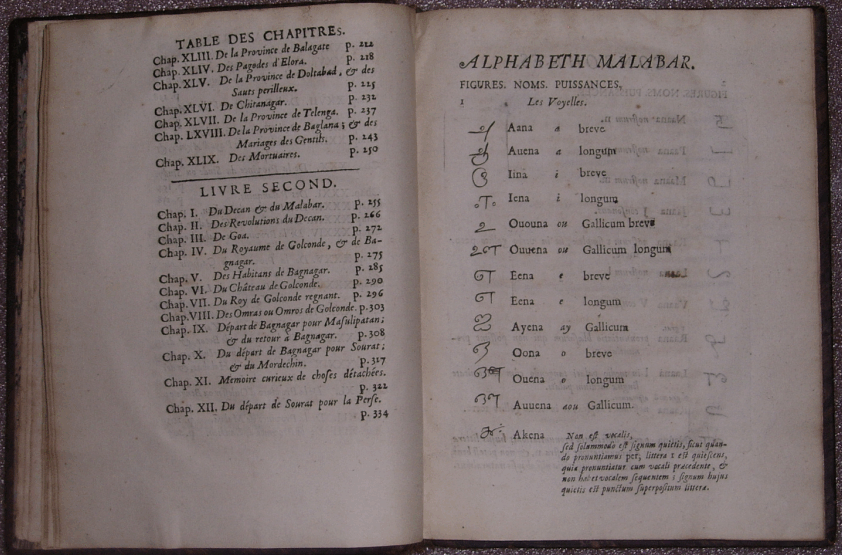 TABLE DES CHAPITRES.
Chap. XLIII. De la Province de Balagate p. 212
Chap. XLIV. Des Pagodes d'Elora. p. 218
Chap. XLV. De la Province de Doltabad, & des
Sauts perilleux. p. 225
Chap. XLVI. De Chitanagar. p. 232
Chap. XLVII. De la Province de Telenga. p. 237
Chap. LXVIII. De la Province de Baglana; & des
Mariages des Gentils. p. 243
Chap. XLIX. Des Mortuaires. p. 250
LIVRE SECOND.
Chap. I. Du Decan & du Malabar. p. 255
Chap. II. Des Revolutions du Decan. p. 266
Chap. III. De Goa. p. 272
Chap. IV. Du Royaume de Golconde, & de Ba-
gnagar. p. 275
Chap. V. Des Habitans de Bagnagar. p. 285
Chap. VI. Du Château de Golconde. p. 290
Chap. VII. Du Roy de Golconde regnant. p. 296
Chap. VIII. Des Omras ou Omros de Golconde. p. 303
Chap. IX. Départ de Bagnagar pour Masulipatan;
& du retour à Bagnagar. p. 308
Chap. X. Du départ de Bagnagar pour Sourat;
& du Mordechin. p. 317
Chap. XI. Memoire curieux de choses détachées.
p. 322
Chap. XII. Du départ de Sourat pour la Perse.
p. 334
ALPHABETH MALABAR.
FIGURES. NOMS. PUISSANCES.
1 Les Voyelles.
Aana a breve
Auena a longum
Iina i breve
Iena i longum
Ououna ou Gallicum breve
Ouuena ou Gallicum longum
Eena e breve
Eena e longum
Ayena ay Gallicum
Oona o breve
Ouena o longum
Auuena aou Gallicum.
Akena Non est vocalis,
sed solummodo est signum quietis, sicut quan-
do pronuntiamus per, littera r est quiescens,
quia pronuntiatur cum vocali præcedente, &
non habet vocalem sequentem; signum hujus
quietis est punctum superpositum litteræ.